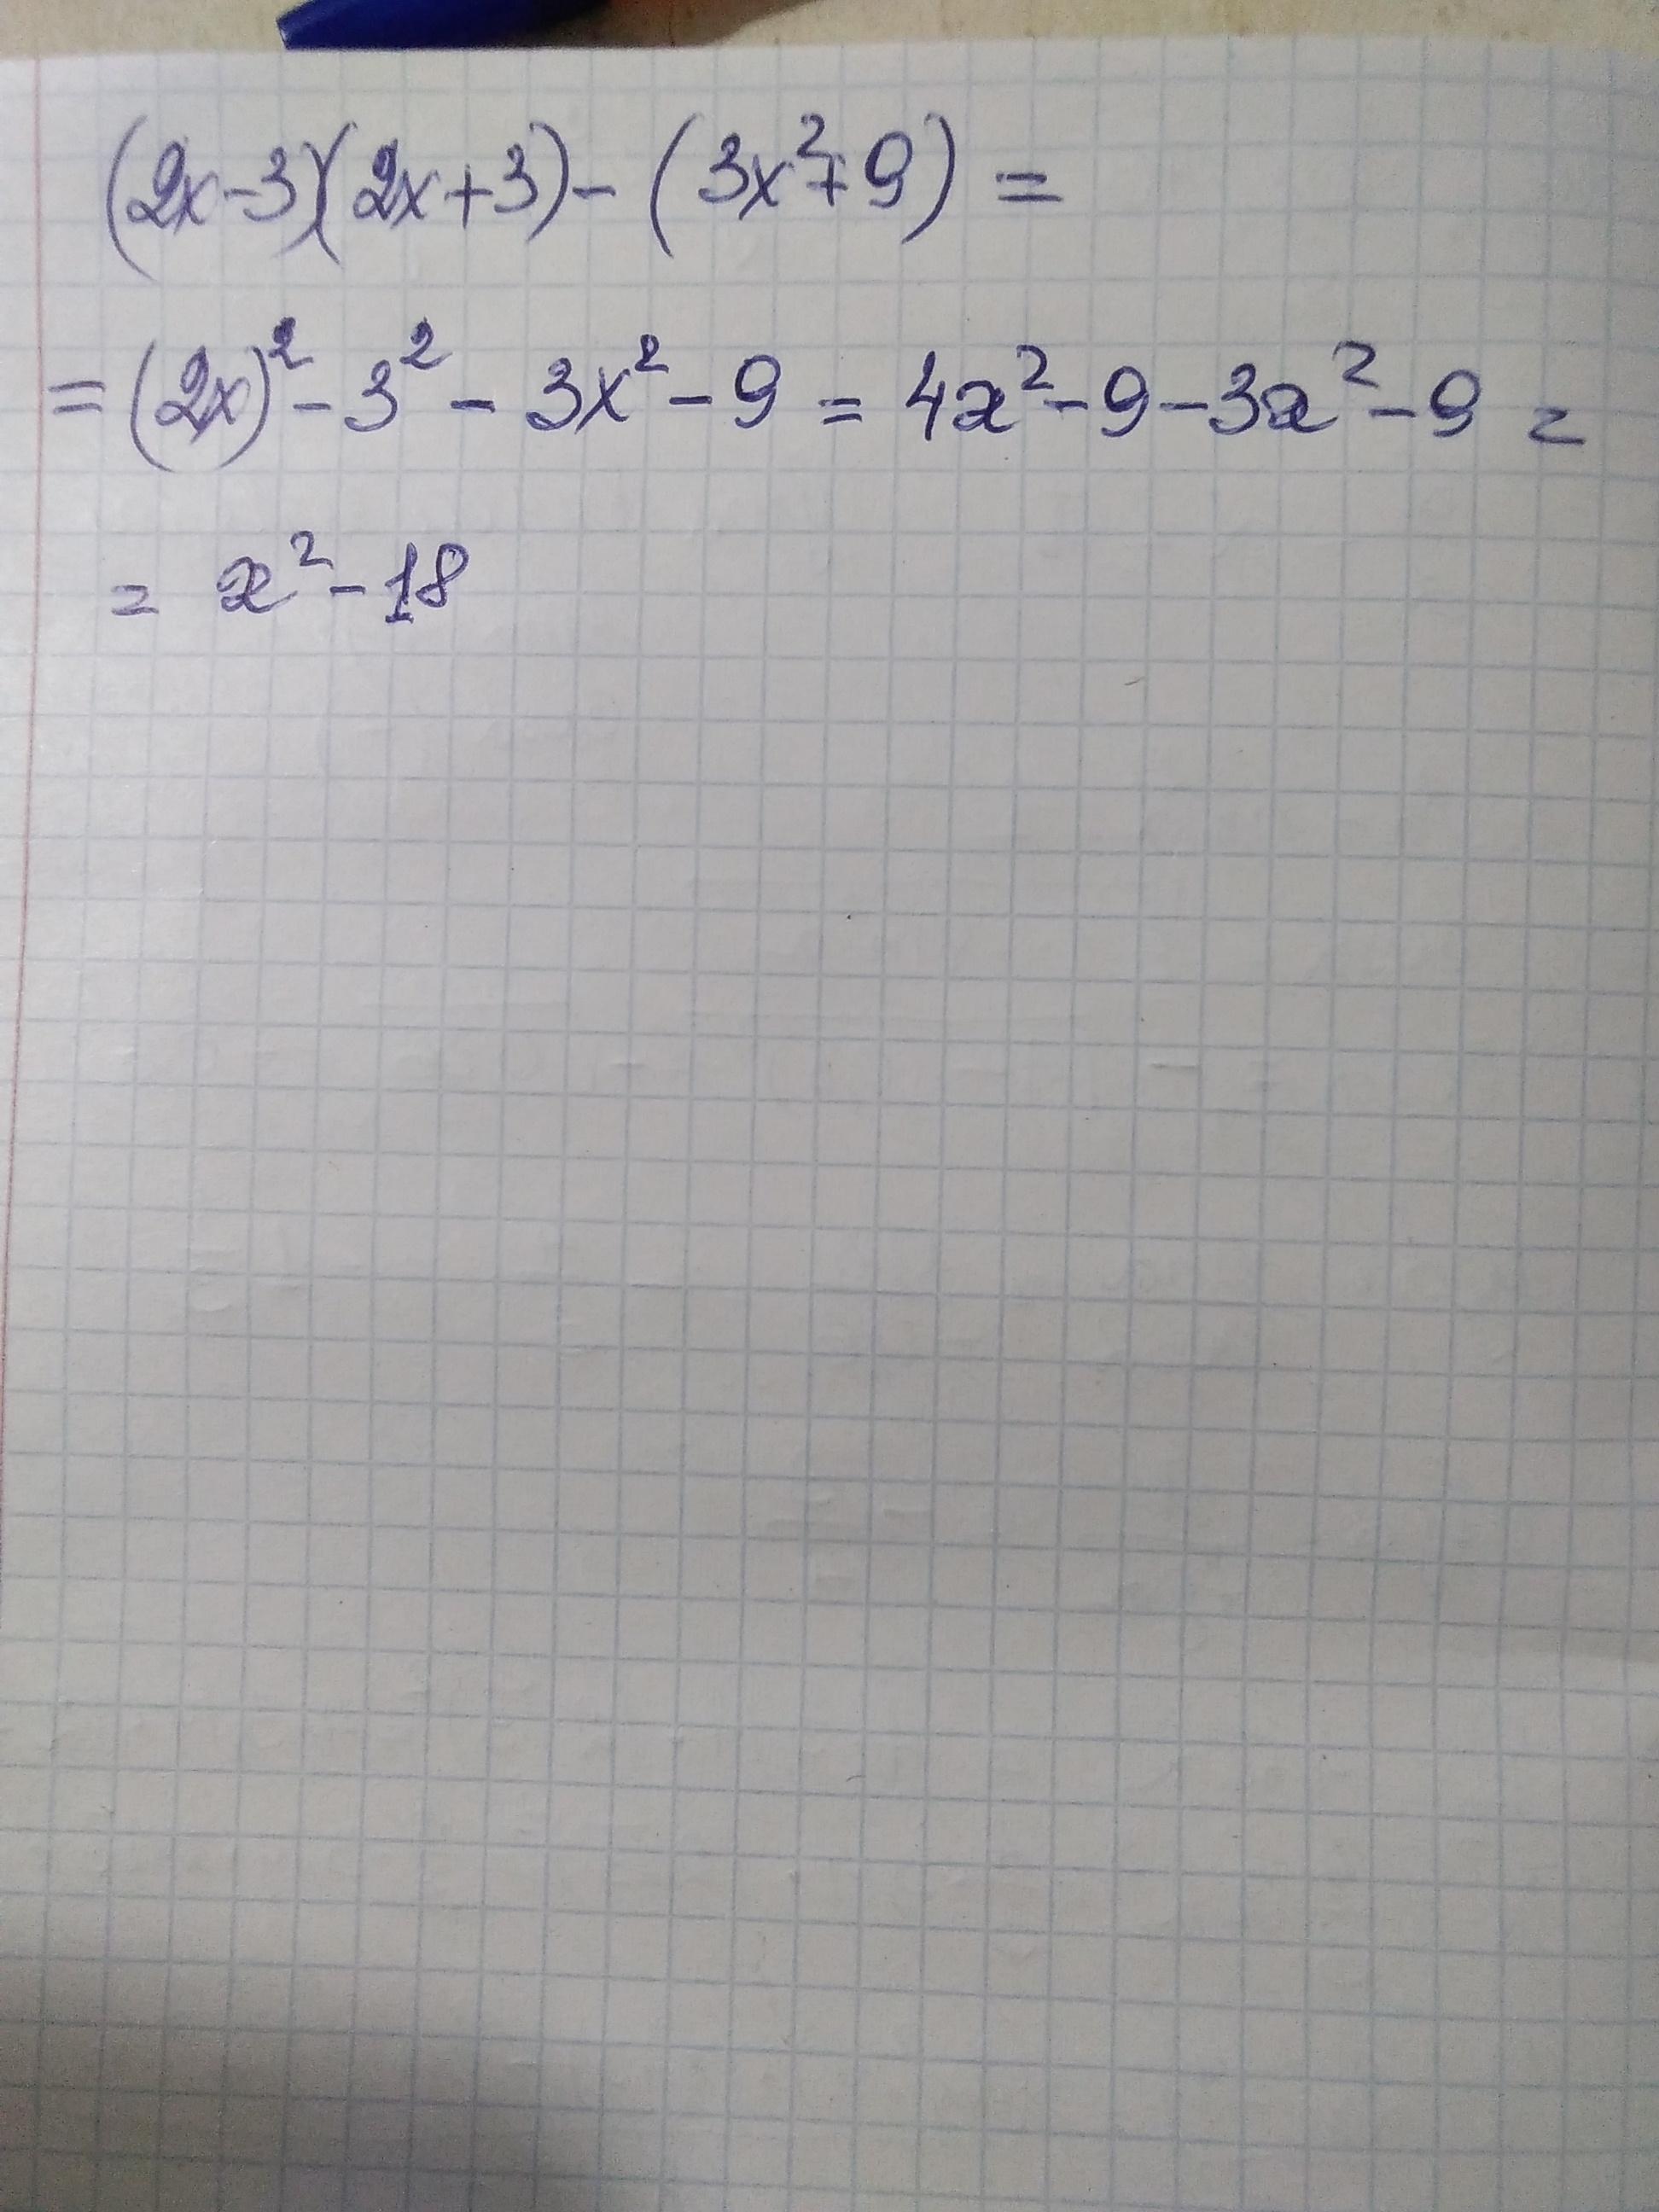 (2x-3)(2x+3)-(3x²+9)=
=(2x)²-3²-3x²-9=4x²-9-3x²-9=
=x²-18